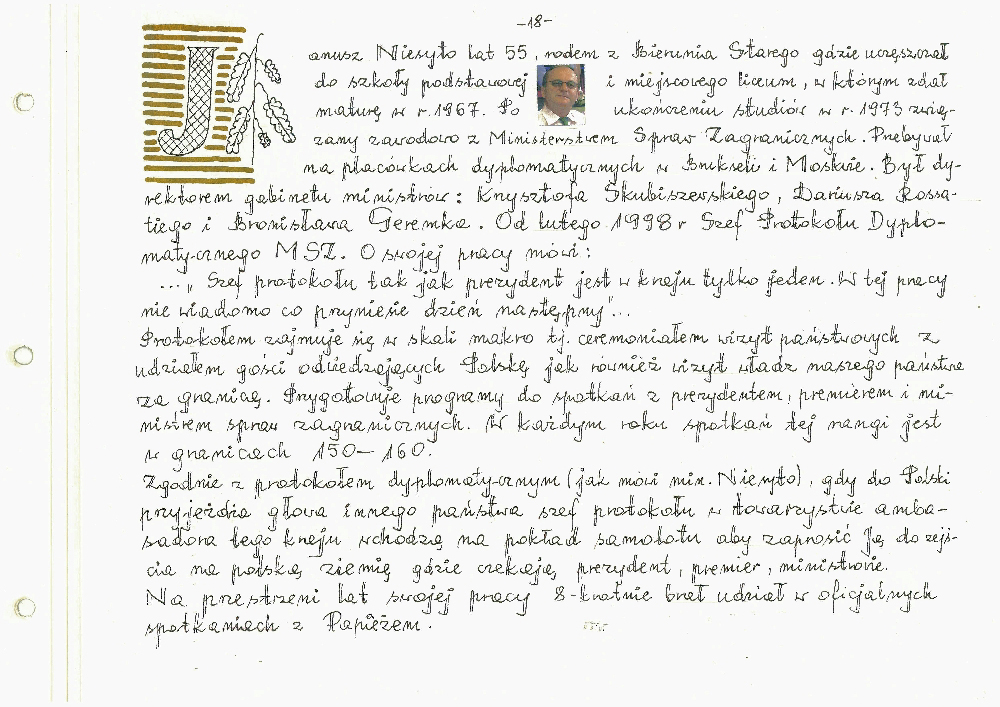 -18-
Janusz Niesyto lat 55, rodem z Bierunia Starego gdzie uczęszczał
do szkoły podstawowej i miejscowego liceum, w którym zdał
maturę w r. 1967. Po ukończeniu studiów w r. 1973 zwią-
zany zawodowo z Ministerstwem Spraw Zagranicznych. Przebywał
na placówkach dyplomatycznych w Brukseli i Moskwie. Był dy-
rektorem gabinetu ministrów: Krzysztofa Skubiszewskiego, Dariusza Rossa-
tiego i Bronisława Geremka. Od lutego 1998 r Szef Protokołu Dyplo-
matycznego MSZ. O swojej pracy mówi:
..." Szef protokołu tak jak prezydent jest w kraju tylko jeden. W tej pracy
nie wiadomo co przyniesie dzień następny"...
Protokołem zajmuje się w skali makro tj. ceremoniałem wizyt państwowych z
udziałem gości odwiedzających Polskę jak również wizyt władz naszego państwa
za granicą. Przygotowuje programy do spotkań z prezydentem, premierem i mi-
nistrem spraw zagranicznych. W każdym roku spotkań tej rangi jest
w granicach 150-160.
Zgodnie z protokołem dyplomatycznym (jak mówi min. Niesyto), gdy do Polski
przyjeżdża głowa innego państwa szef protokołu w towarzystwie amba-
sadora tego kraju wchodzą na pokład samolotu aby zaprosić Ją do zejś-
cia na polską ziemię gdzie czekają, prezydent, premier, ministrowie.
Na przestrzeni lat swojej pracy 8-krotnie brał udział w oficjalnych
spotkaniach z Papieżem.